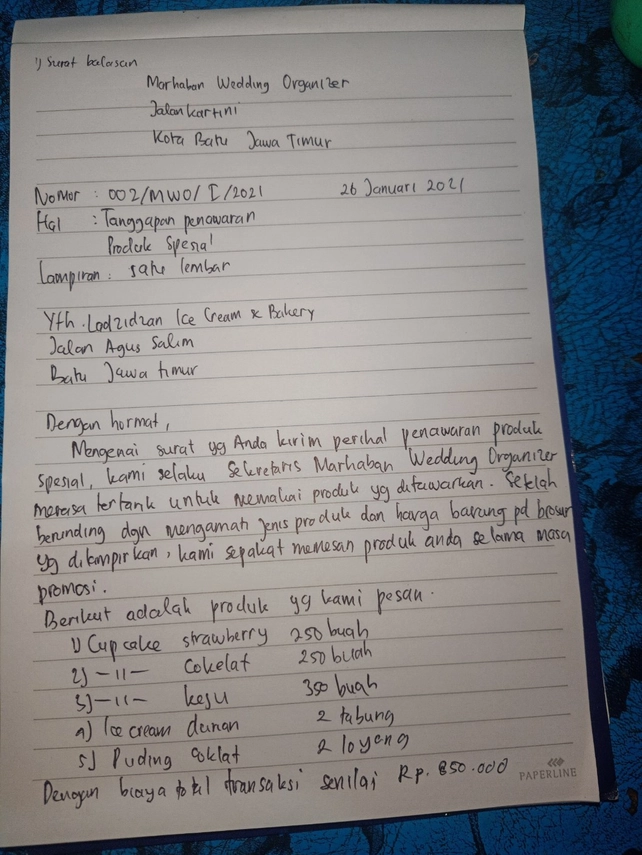 1) Surat balasan
Marhaban Wedding Organizer
Jalan Kartini
Kota Batu Jawa Timur
Nomor : 002/MWO/I/2021 26 Januari 2021
Hal : Tanggapan penawaran
Produk Spesial
Lampiran : satu lembar
Yth. Ladzidzan Ice Cream & Bakery
Jalan Agus Salim
Batu Jawa timur
Dengan hormat,
Mengenai surat yg Anda kirim perihal penawaran produk
spesial, kami selaku Sekretaris Marhaban Wedding Organizer
merasa tertarik untuk memakai produk yg ditawarkan. Setelah
berunding dgn mengamati jenis produk dan harga barang pd brosur
yg dilampirkan, kami sepakat memesan produk anda selama masa
promosi.
Berikut adalah produk yg kami pesan.
1) Cup cake strawberry 250 buah
2) -11- Cokelat 250 buah
3) -11- keju 350 buah
4) Ice cream durian 2 tabung
5) Puding coklat 2 loyang
Dengan biaya total transaksi senilai Rp. 850.000
PAPERLINE